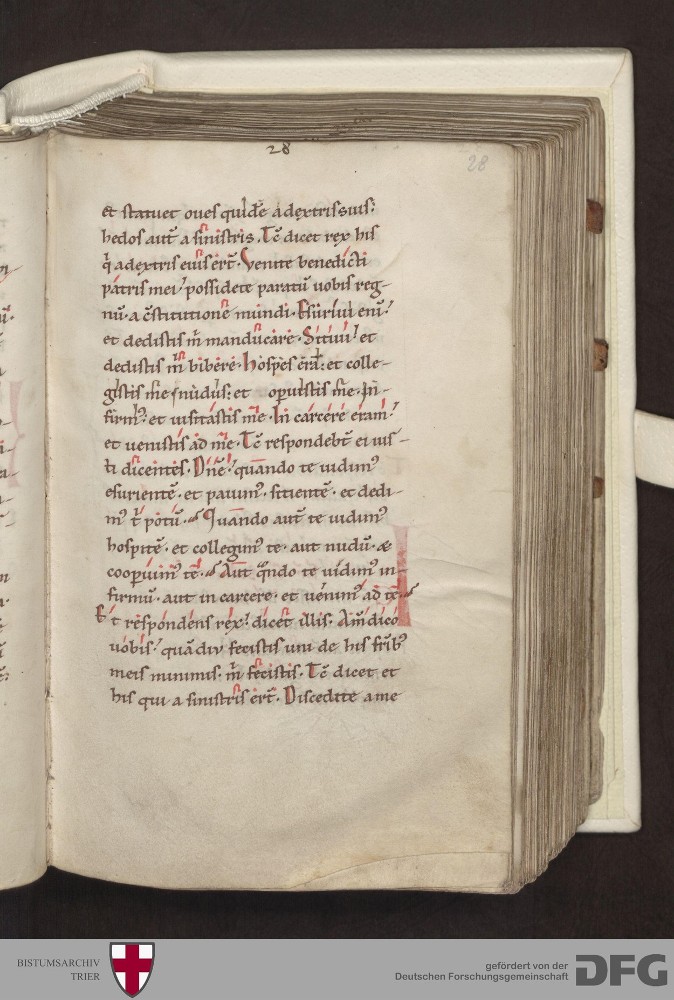 28
28
et statuet oues quidē a dextris suis;
hedos aut̄ a sinistris. Tc̄ dicet rex his
q̇ a dextris eius ert̄. Venite benedicti
patris mei possidete paratū uobis reg-
nū. a cstitutione mundi. Esuriui eni
et dedistis m̄ manducare. Sitiui et
dedistis m̄ bibere. hospes erā. et colle-
gistis me nudus. et operuistis me. in-
firm᷒. et uisitastis me. In carcere eram
et uenistis ad me. Tc̄ respondebt̄ ei ius-
ti dicentes. Dn̄e quando te uidim᷒
esurientē. et pauim᷒. sitientē. et dedi-
m᷒ t̄ potū. Quando aut̄ te uidim᷒
hospitē. et collegim᷒ te. aut nudū. &
cooperuim᷒ te. Aut qn̄do te uidim᷒ in-
firmū. aut in carcere. et uenim᷒ ad te.
Et respondens rex dicet illis. Am̄ dico
uobis quādiu fecistis uni de his frib᷒
meis minimis. m̄ fecistis. Tc̄ dicet et
his qui a sinistris ert̄. Discedite a me
BISTUMSARCHIV
TRIER
gefördert von der
Deutschen Forschungsgemeinschaft
DFG